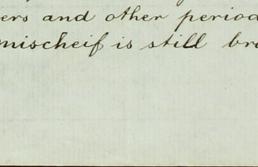 ers and other period
mischeif is still bro